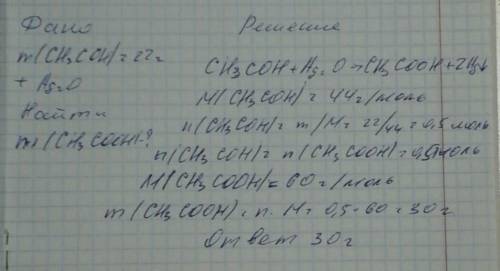 Дано
m(CH₃COH)=22г
+ Ag₂O
Найти
m(CH₃COOH)-?
Решение
CH₃COH+Ag₂O→CH₃COOH+2Ag↓
M(CH₃COH)=44г/моль
n(CH₃COH)=m/M=22/44=0,5 моль
n(CH₃COH)=n(CH₃COOH)=0,5моль
M(CH₃COOH)=60г/моль
m(CH₃COOH)=n·M=0,5·60=30г
Ответ 30г